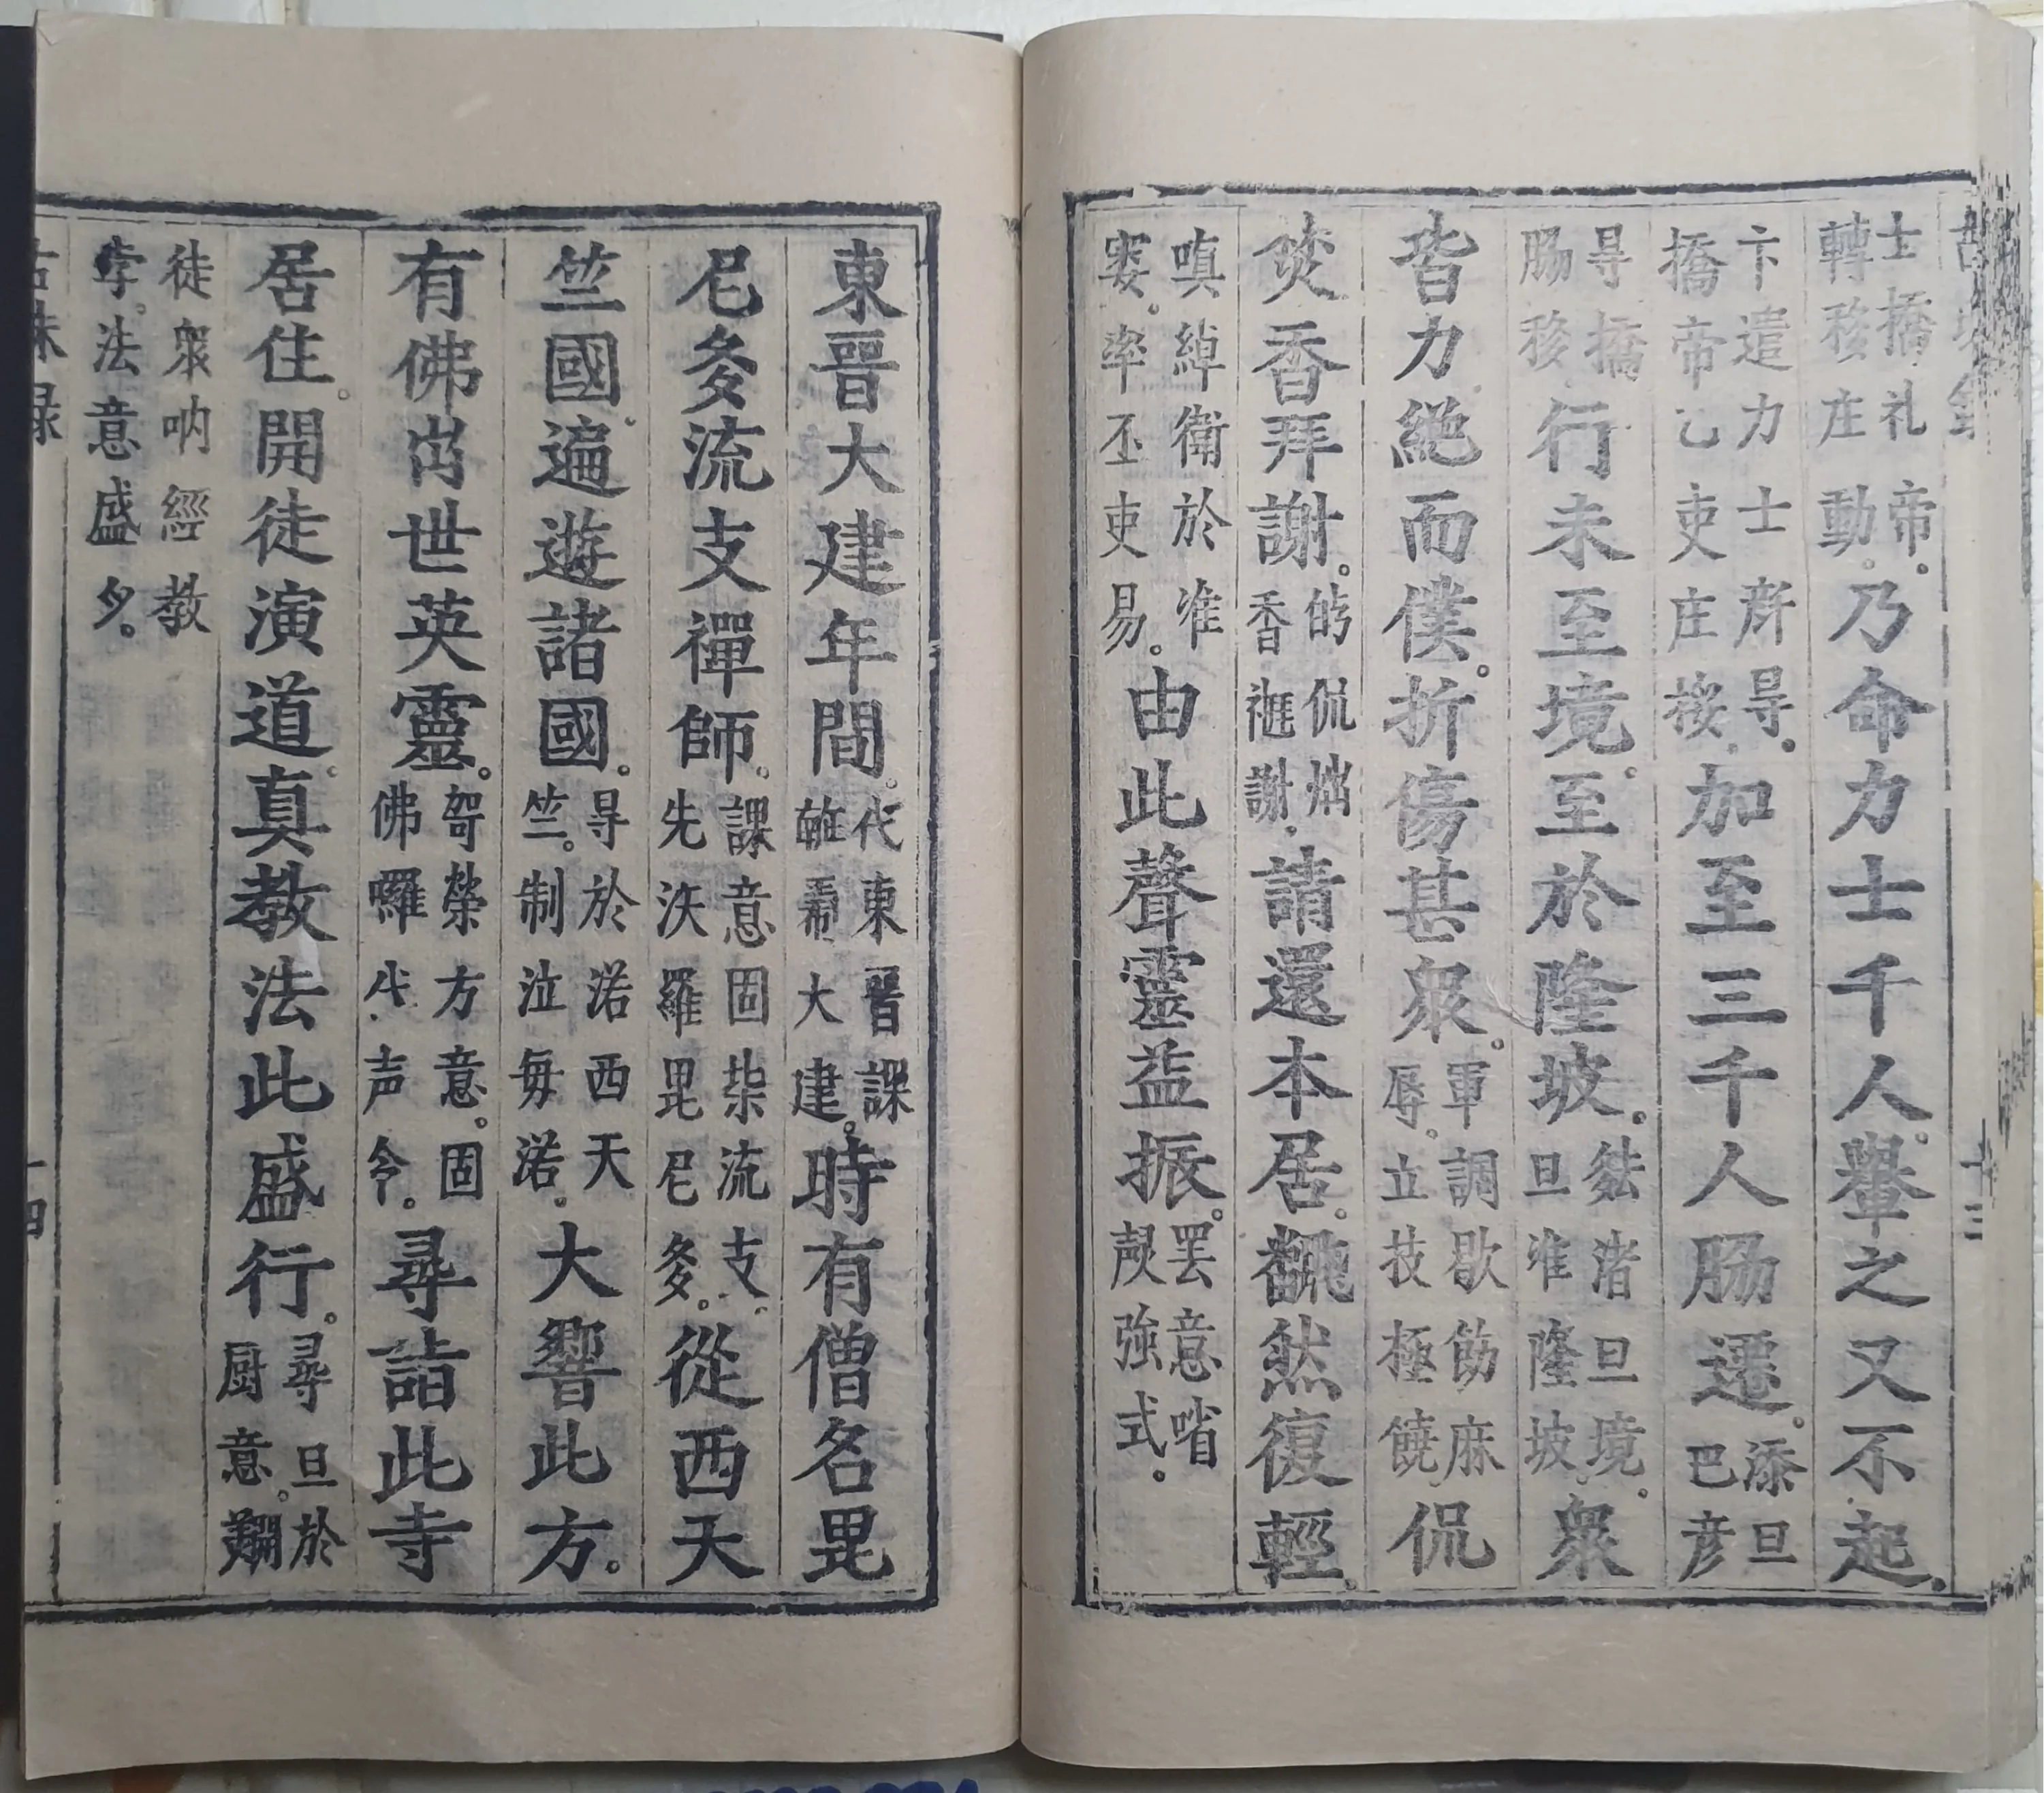 士撟礼帝。
轉移庄動。
乃命力士千人轝之又不起。
卞遣力士㝵。
撟帝乙吏庄挼
加至三千人肠遷。
添旦
巴彦
㝵撟
肠移
行未至境。至於隆坡。
渚旦境。
旦准隆坡
衆
皆力絶而僕。折傷甚衆。
軍調歇劤麻
辱。立技極饒
侃
焚香拜謝。
侃
香謝
請還本居。飜然復輕。
嗔綽衛於准
率丕吏易。
由此聲靈益振。
罢意啫
強式。
十三
東晉大建年間。
代東晉課
大建。
時有僧名毘
尼多流支禪師。
課意固柴流支。
先法羅毘尼多。
從西天
竺國遍遊諸國。
㝵於渃西天
竺。制泣每渃。
大響此方。
有佛出世英靈。
哿榮方意。固
佛囉 声令。
尋詣此寺
居住。開徒演道。真教法此盛行。
尋旦於
厨意。
徒衆吶經教
孛。法意盛